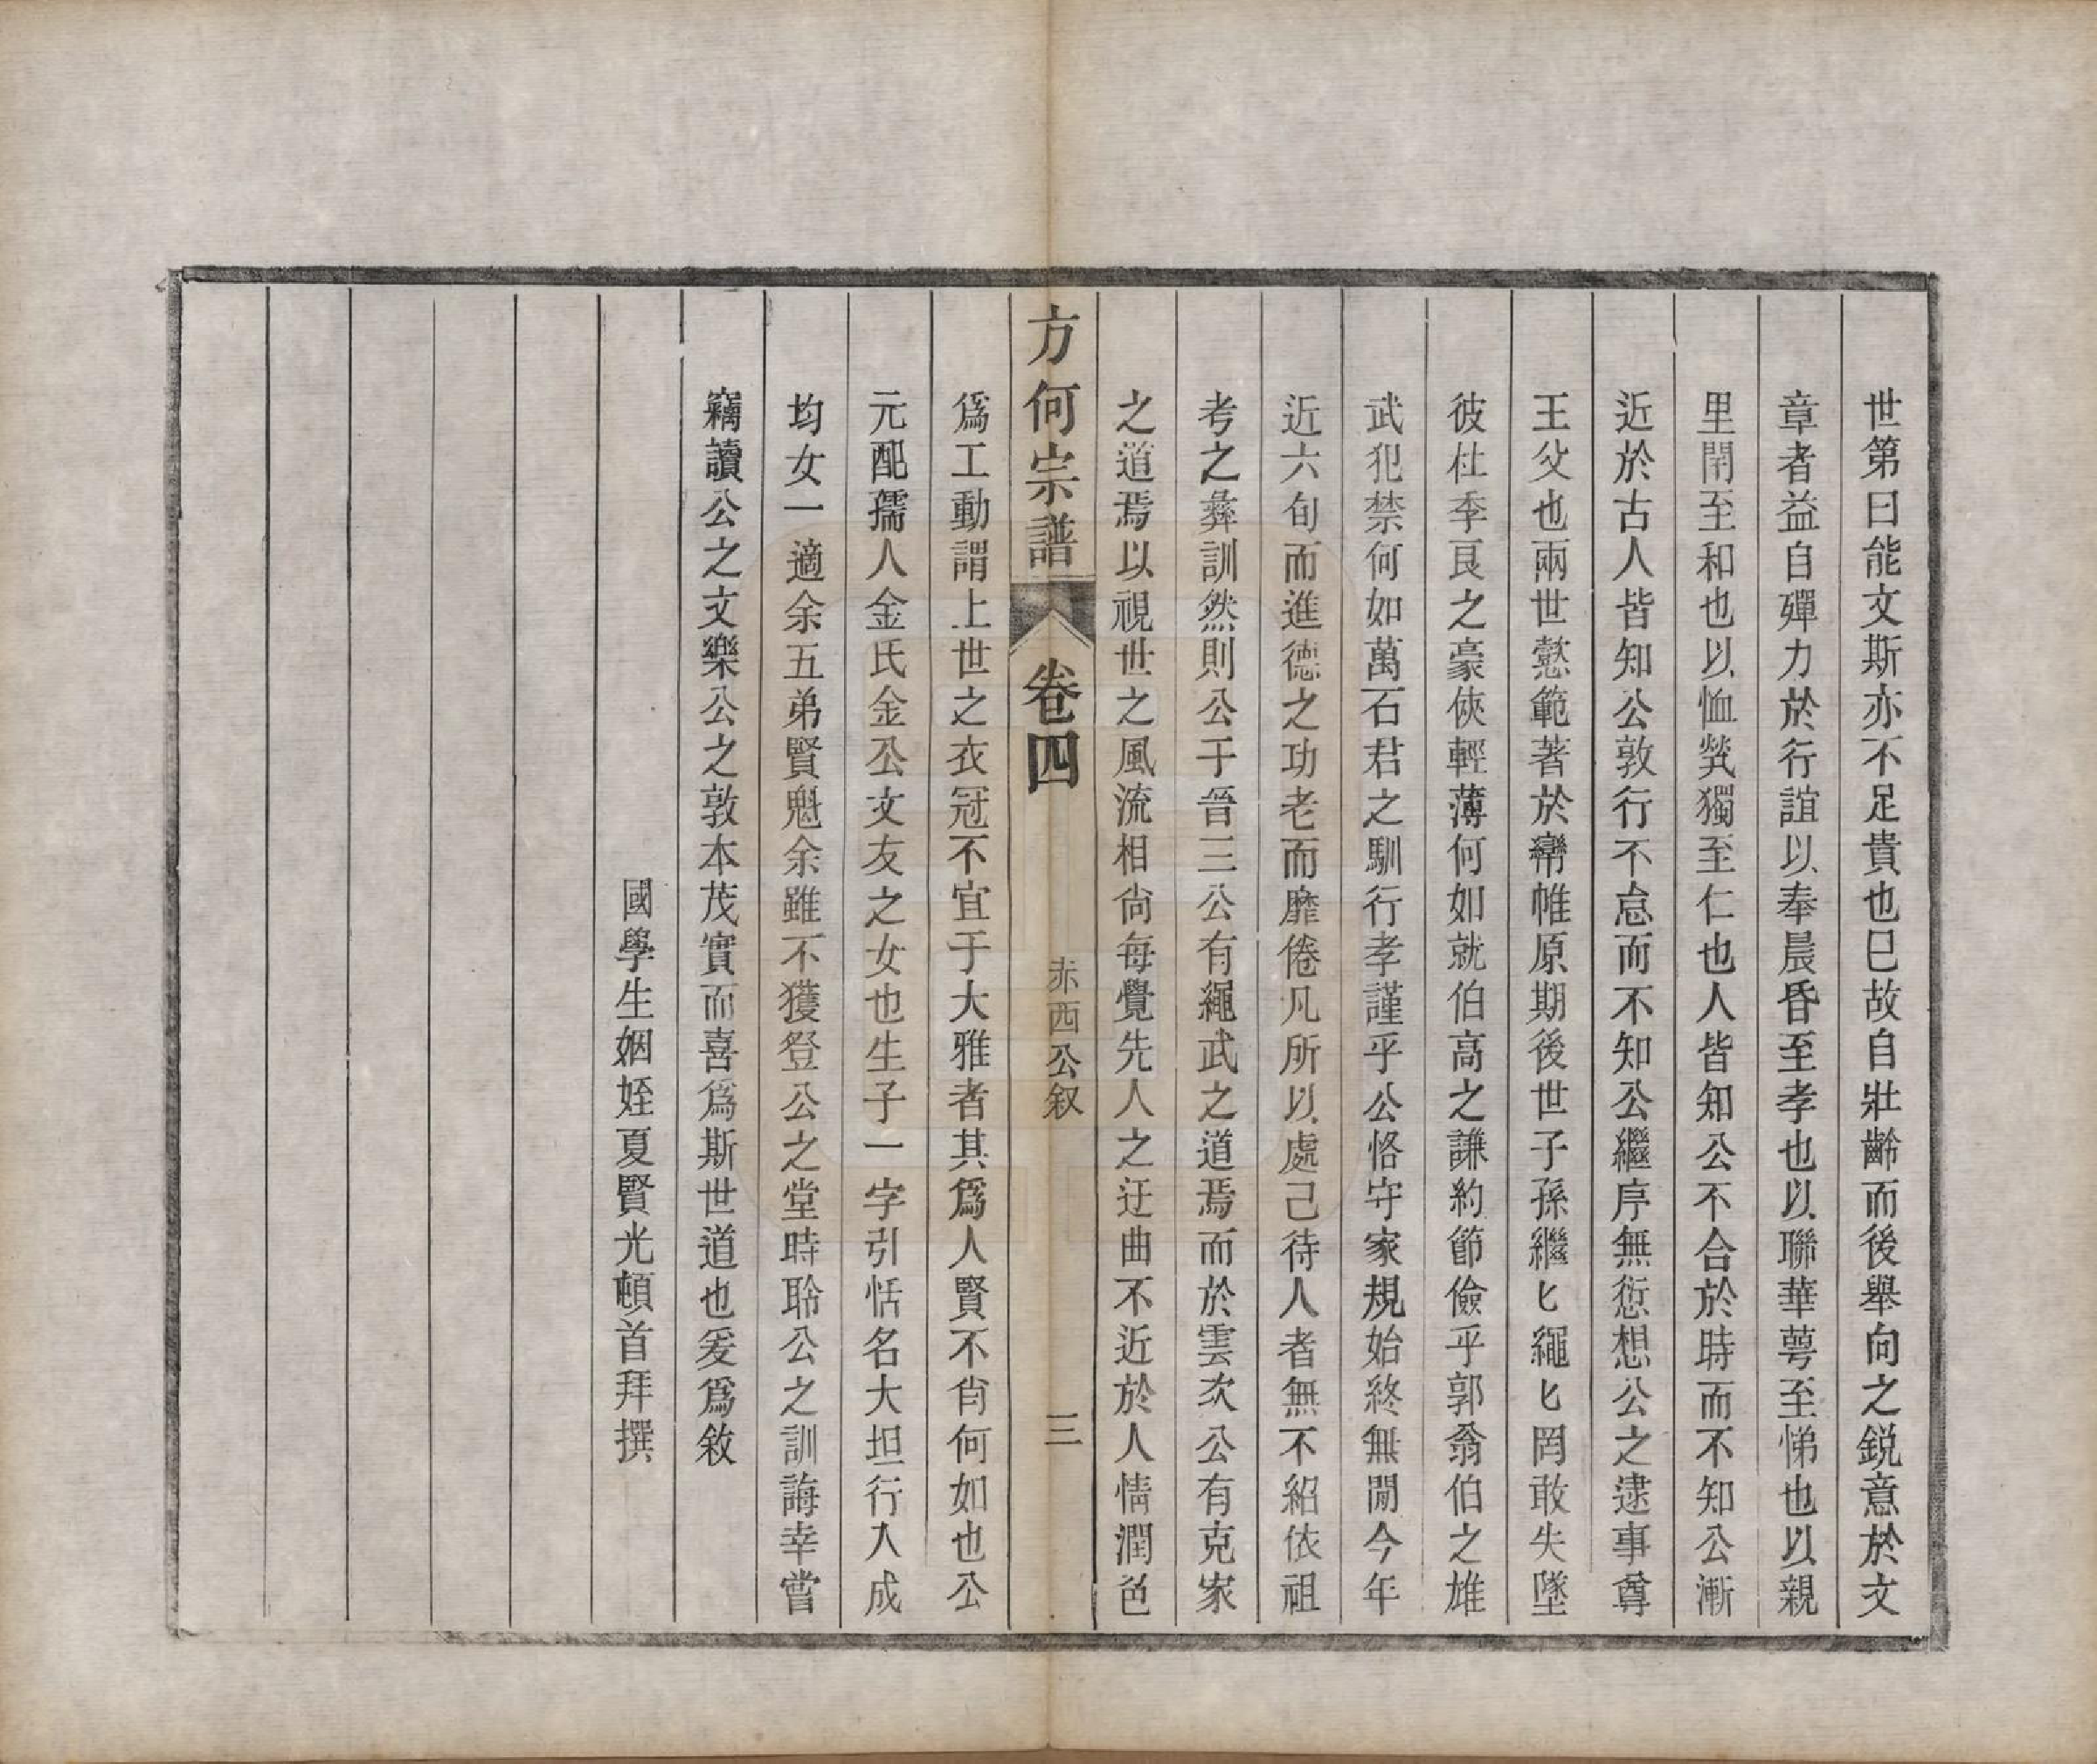 世第曰能文斯亦不足貴也巳故自壯齡而後舉向之銳意於文
章者益自殫力於行誼以奉晨昏至孝也以聯華萼至悌也以親
里閈至和也以恤煢獨至仁也人皆知公不合於時而不知公漸
近於古人皆知公敦行不怠而不知公繼序無愆想公之逮事尊
王父也兩世懿範著於幃帷原期後世子孫繼匕繩匕罔敢失墜
彼杜季良之豪俠輕薄何如就伯高之謙約節儉乎郭翁伯之雄
武犯禁何如萬石君之馴行孝謹乎公恪守家規始終無閒今年
近六旬而進德之功老而靡倦凡所以處己待人者無不紹依祖
考之彝訓然則公于晉三公有繩武之道焉而於雲次公有克家
之道焉以視世之風流相尙每覺先人之迂曲不近於人情潤色
方何宗譜 卷四 赤西公叙 三
爲工動謂上世之衣冠不宜于大雅者其爲人賢不肖何如也公
元配孺人金氏金公文友之女也生子一字引恬名大坦行人成
均女一適余五弟賢魁余雖不獲登公之堂時聆公之訓誨幸嘗
竊讀公之文樂公之敦本茂實而喜爲斯世道也爰爲敘
國學生姻姪夏賢光頓首拜撰